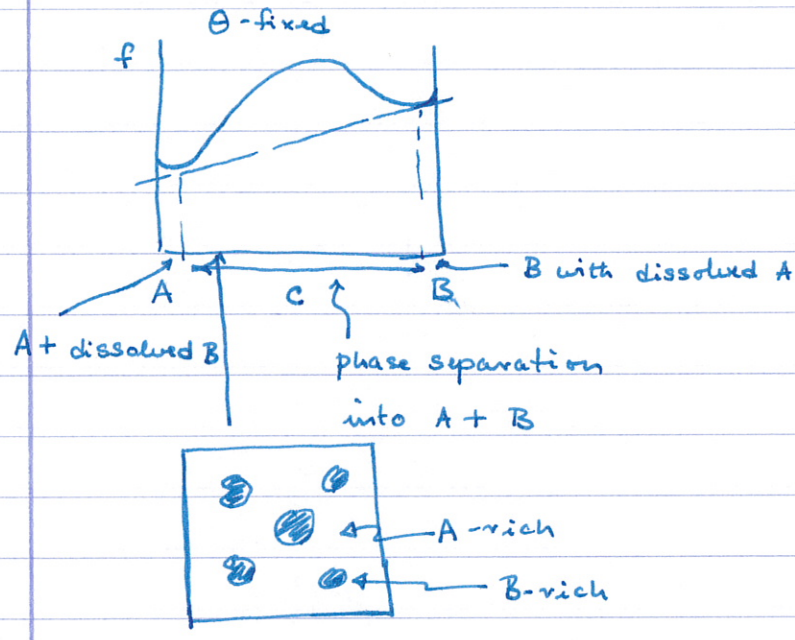 θ-fixed
f
A
c
B
B with dissolved A
A + dissolved B
phase separation
into A + B
A-rich
B-rich